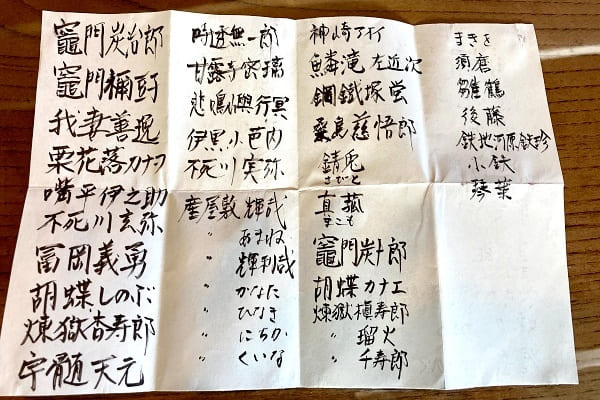 竈門炭治郎
竈門禰豆子
我妻善逸
栗花落カナヲ
嘴平伊之助
不死川玄弥
冨岡義勇
胡蝶しのぶ
煉獄杏寿郎
宇髄天元
時透無一郎
甘露寺蜜璃
悲鳴嶼行冥
伊黒小芭内
不死川実弥
産屋敷輝哉
〃 あまね
〃 輝利哉
〃 かなた
〃 ひなき
〃 にちか
〃 くいな
神崎アオイ
鱗滝左近次
鋼鐵塚蛍
桑島慈悟郎
錆兎
さびと
真菰
まこも
竈門炭十郎
胡蝶カナエ
煉獄槇寿郎
〃 瑠火
〃 千寿郎
まきを
須磨
雛鶴
後藤
鉄地河原鉄珍
小鉄
琴葉